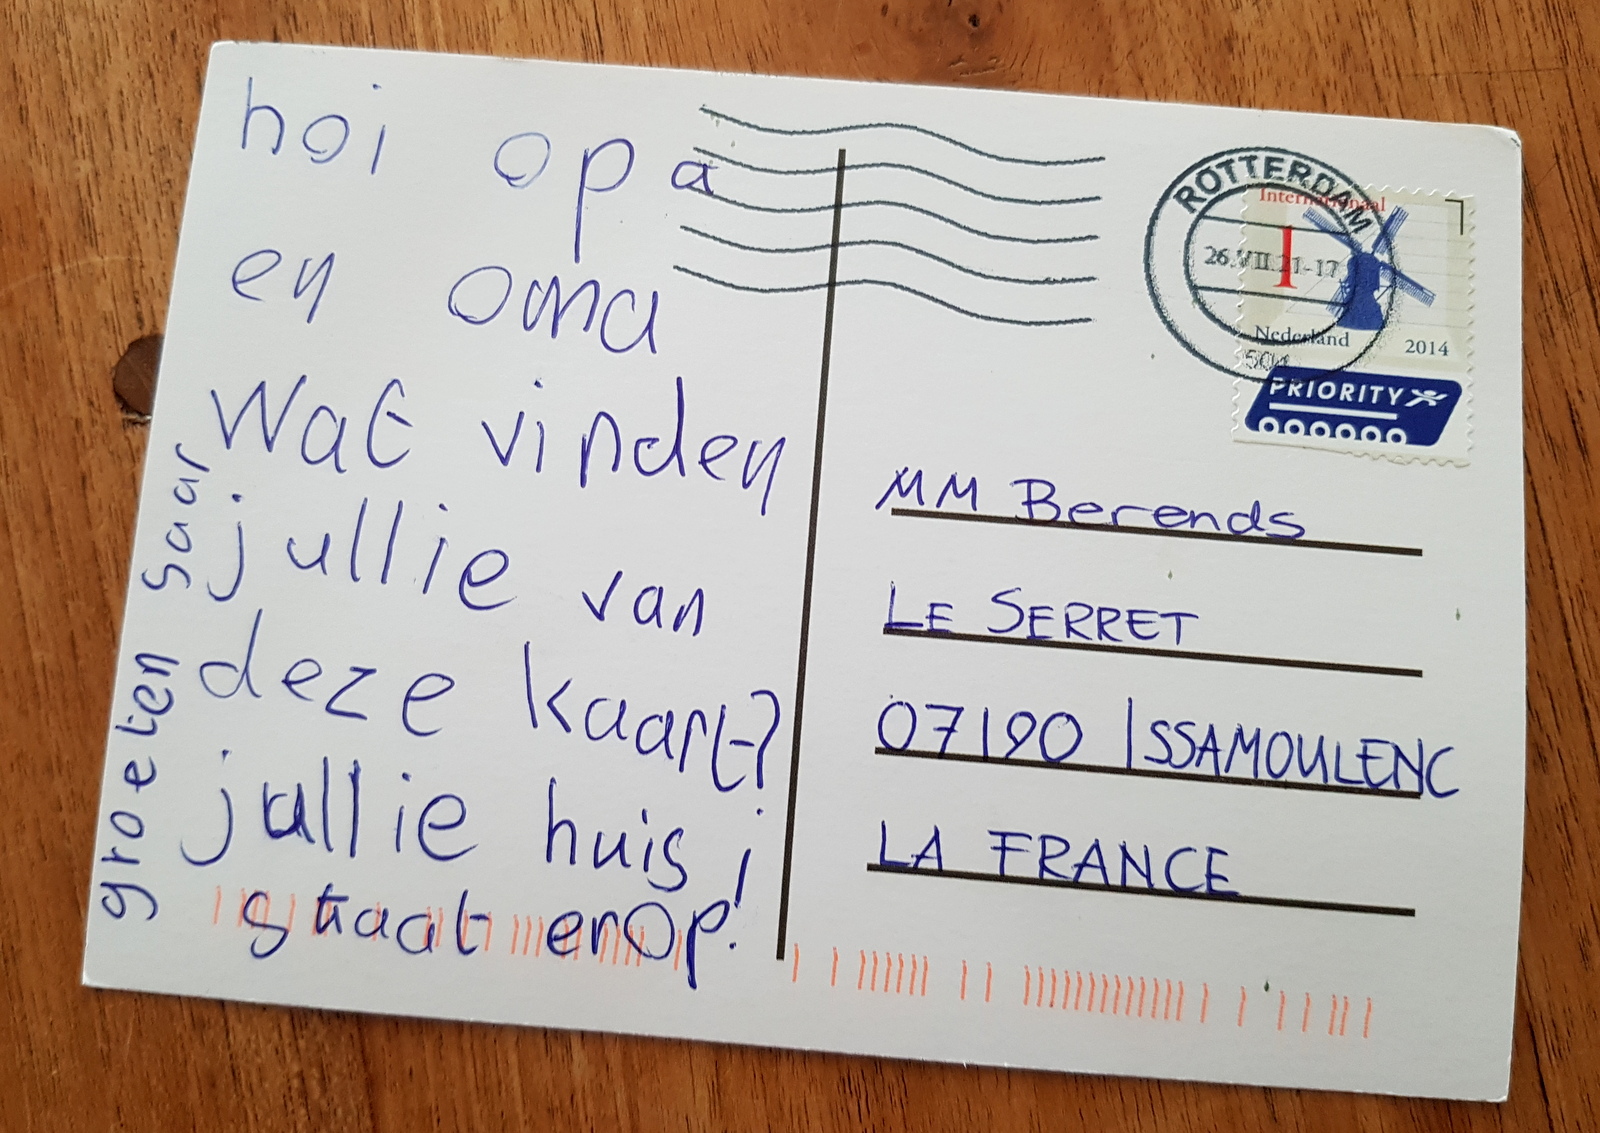 hoi opa
en oma
Wat vinden
jullie van
deze kaart?
jullie huis
staat erop!
groeten saar
ROTTERDAM
26.VII 21-17
Internationaal
1
Nederland 2014
PRIORITY
MM Berends
LE SERRET
07190 ISSAMOULENC
LA FRANCE